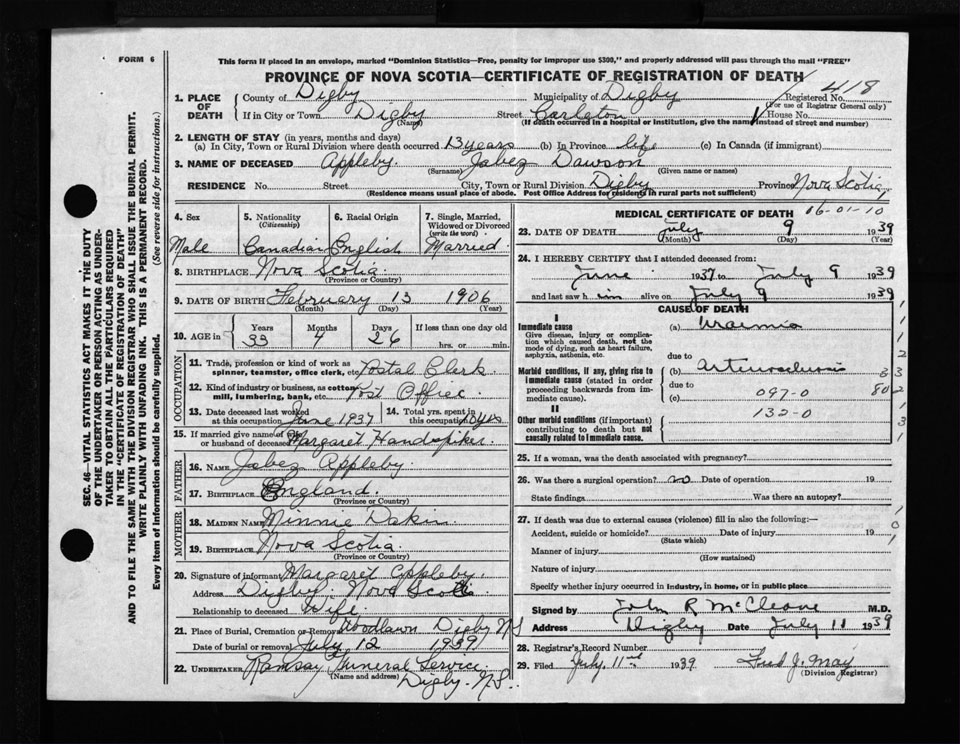 FORM 6
This form if placed in an envelope, marked "Dominion Statistics—Free, penalty for improper use $300," and properly addressed will pass through the mail "FREE"
PROVINCE OF NOVA SCOTIA—CERTIFICATE OF REGISTRATION OF DEATH
SEC. 46—VITAL STATISTICS ACT MAKES IT THE DUTY
OF THE UNDERTAKER OR PERSON ACTING AS UNDER-
TAKER TO OBTAIN ALL THE PARTICULARS REQUIRED
IN THE "CERTIFICATE OF REGISTRATION OF DEATH"
AND TO FILE THE SAME WITH THE DIVISION REGISTRAR WHO SHALL ISSUE THE BURIAL PERMIT.
WRITE PLAINLY WITH UNFADING INK. THIS IS A PERMANENT RECORD.
Every item of information should be carefully supplied. (See reverse side for instructions.)
1. PLACE OF DEATH County of Digby Municipality of Digby Registered No. 418
(For use of Registrar General only)
If in City or Town Digby Street Carleton House No.
(Name) (If death occurred in a hospital or institution, give the name instead of street and number)
2. LENGTH OF STAY (in years, months and days)
(a) In City, Town or Rural Division where death occurred 13 years (b) In Province life (c) In Canada (if immigrant)
3. NAME OF DECEASED Appleby Jabez Dawson
(Surname) (Given name or names)
RESIDENCE No. Street City, Town or Rural Division Digby Province Nova Scotia
(Residence means usual place of abode. Post Office Address for residents in rural parts not sufficient)
4. Sex 5. Nationality (Citizenship) 6. Racial Origin 7. Single, Married, Widowed or Divorced (write the word)
Male Canadian English Married
8. BIRTHPLACE Nova Scotia
(Province or Country)
9. DATE OF BIRTH February 13 1906
(Month) (Day) (Year)
10. AGE in Years Months Days If less than one day old
33 4 26 hrs. or min.
OCCUPATION
11. Trade, profession or kind of work as spinner, teamster, office clerk, etc. Postal Clerk
12. Kind of industry or business, as cotton mill, lumbering, bank, etc. Post Office
13. Date deceased last worked at this occupation June 1937 14. Total yrs. spent in this occupation
15. If married give name of wife or husband of deceased Margaret Handspiker
FATHER
16. NAME Jabez Appleby
17. BIRTHPLACE England
(Province or Country)
MOTHER
18. MAIDEN NAME Minnie Dakin
19. BIRTHPLACE Nova Scotia
(Province or Country)
20. Signature of informant Margaret Appleby
Address Digby, Nova Scotia
Relationship to deceased Wife
21. Place of Burial, Cremation or Removal Woodlawn Digby NS
Date of burial or removal July 12 1939
22. UNDERTAKER Ramsay Funeral Service
(Name and address) Digby. N.S.
MEDICAL CERTIFICATE OF DEATH 06-01-10
23. DATE OF DEATH July 9 1939
(Month) (Day) (Year)
24. I HEREBY CERTIFY that I attended deceased from:
June 1937 to July 9 1939
and last saw him alive on July 9 1939
CAUSE OF DEATH
I
Immediate cause (a) Uraemia
Give disease, injury or complication which caused death, not the mode of dying, such as heart failure, asphyxia, asthenia, etc.
due to
Morbid conditions, if any, giving rise to immediate cause (stated in order proceeding backwards from immediate cause). (b) Arteriosclerosis
due to
(c) 097-0
II 132-0
Other morbid conditions (if important) contributing to death but not causally related to immediate cause.
25. If a woman, was the death associated with pregnancy?
26. Was there a surgical operation? no Date of operation 19
State findings Was there an autopsy?
27. If death was due to external causes (violence) fill in also the following:—
Accident, suicide or homicide? Date of injury 19
(State which)
Manner of injury
(How sustained)
Nature of injury
Specify whether injury occurred in industry, in home, or in public place
Signed by John R McCleave M.D.
Address Digby Date July 11 1939
28. Registrar's Record Number
29. Filed July 11 1939 Fred J. May
(Division Registrar)